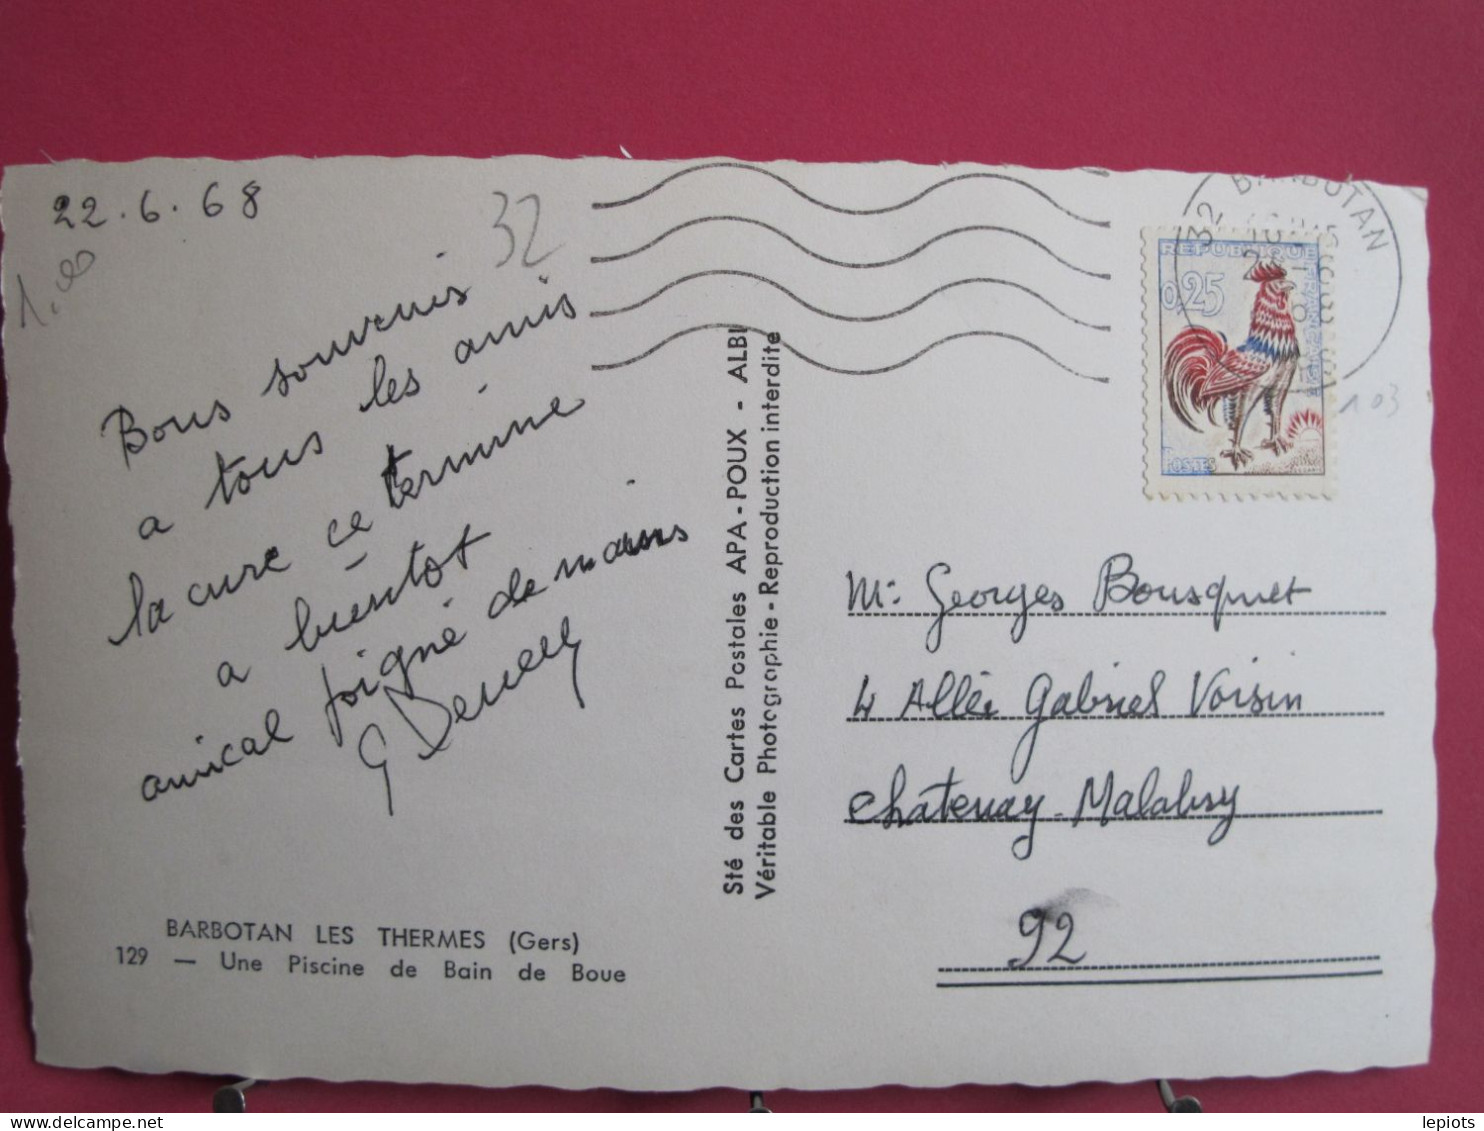 22.6.68
32
1,00
Bons souvenis
a tous les amis
la cure ce termine
a bientot
amical poigné de mains
G
BARBOTAN LES THERMES (Gers)
129 — Une Piscine de Bain de Boue
Sté des Cartes Postales APA-POUX - ALBI
Véritable Photographie - Reproduction interdite
32 BARBOTAN
REPUBLIQUE
FRANÇAISE
0,25
POSTES
103
Mr Georges Bousquet
4 Allée Gabriel Voisin
Chatenay-Malabry
92
lepiots